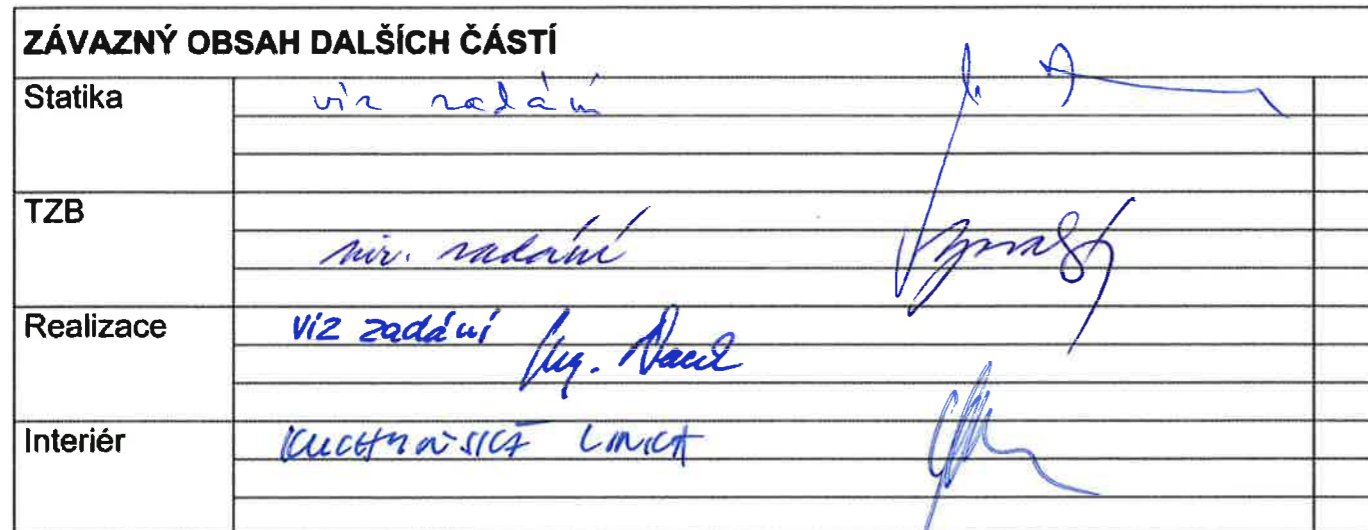 ZÁVAZNÝ OBSAH DALŠÍCH ČÁSTÍ
Statika viz zadání
TZB viz. zadání
Realizace viz zadání Ing.
Interiér KUCHYŇSKÁ LINKA